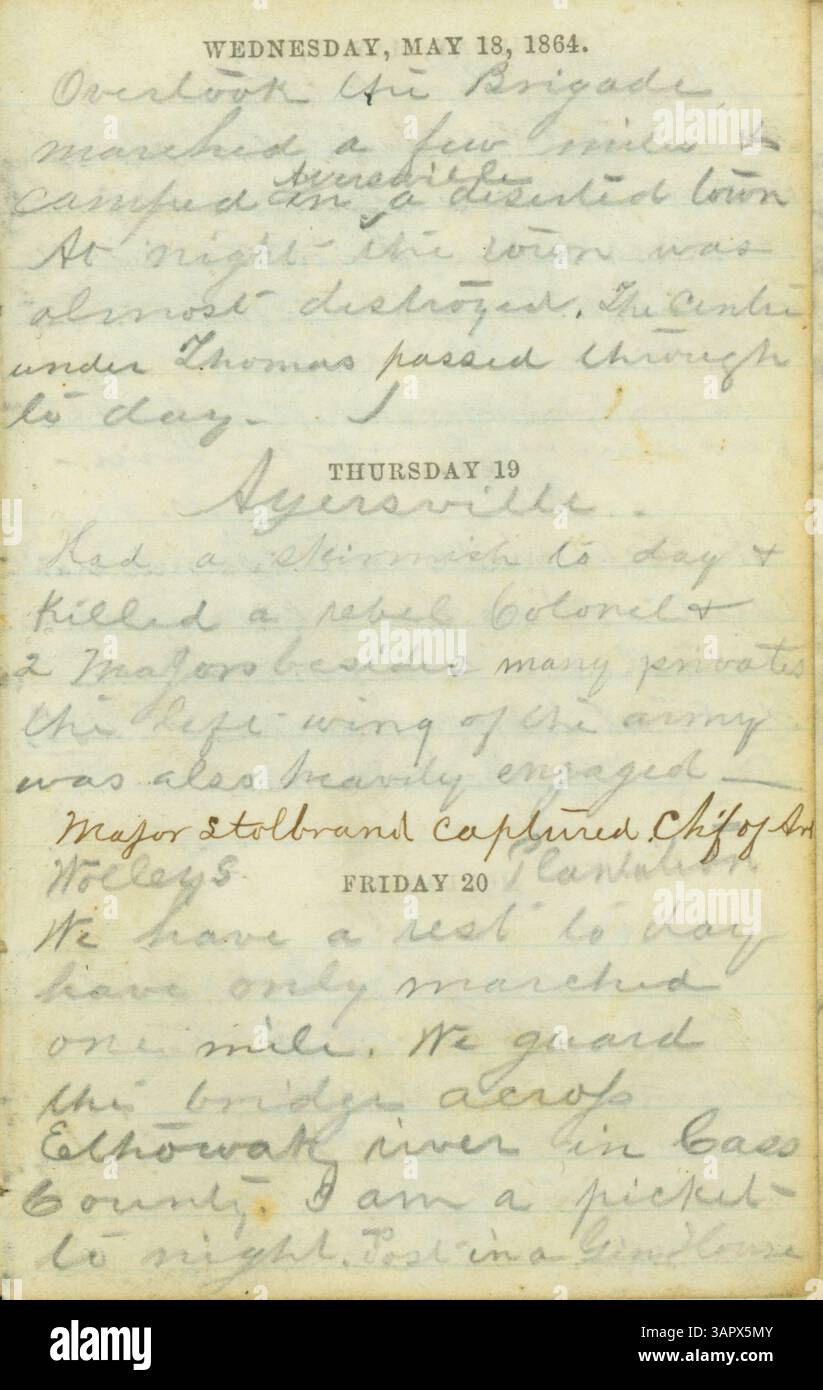 WEDNESDAY, MAY 18, 1864.
Overtook the Brigade
marched a few miles &
Ayersville
camped in a deserted town
At night the town was
almost destroyed. The Centre
under Thomas passed through
to day.
THURSDAY 19
Ayersville.
Had a skirmish to day &
Killed a rebel Colonel &
2 Majors besides many privates
the left wing of the army
was also heavily engaged —
Major Stolbrand captured. Chf of Art
Wolleys Plantation
FRIDAY 20
We have a rest to day
have only marched
one mile. We guard
the bridge across
Ethowak river in Cass
County. I am a picket
to night. Post in a Gin House
alamy
Image ID: 3APX5MY
www.alamy.com